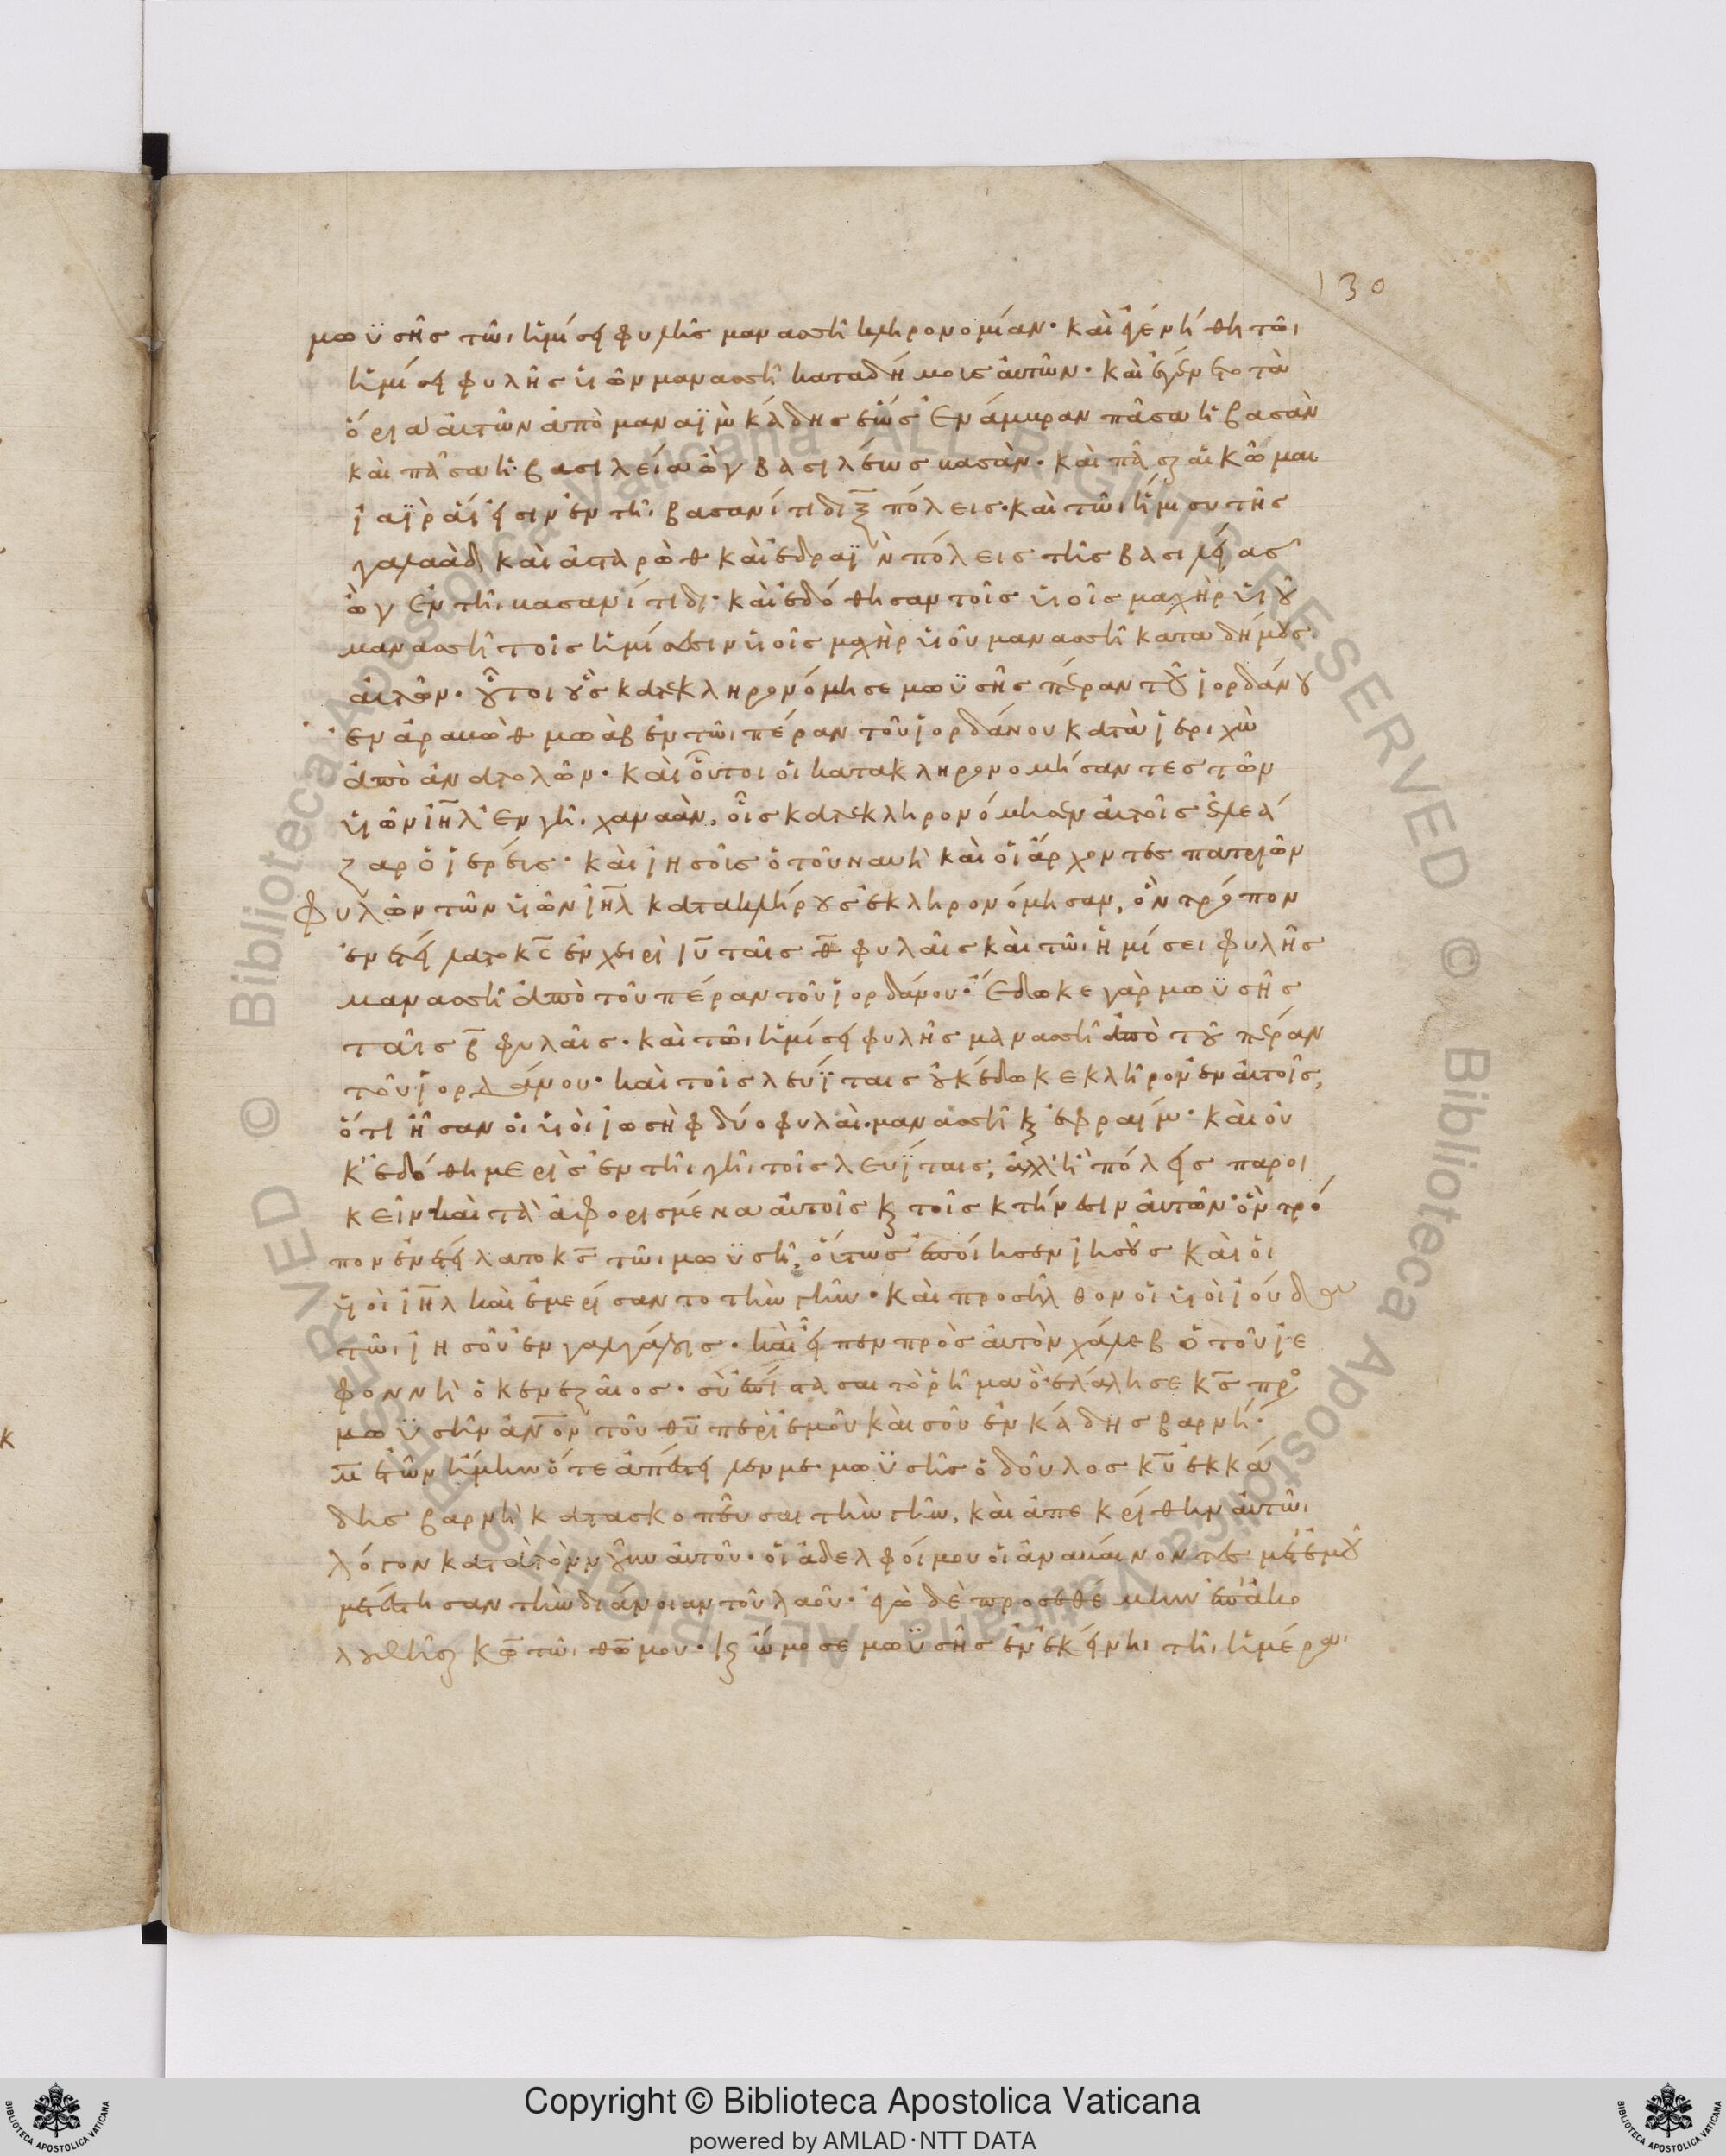 130
μωϋσῆς τῶι ἡμίσει φυλῆς μανασσῆ κληρονομίαν· καὶ ἐγενήθη τῶι
ἡμίσει φυλῆς υἱῶν μανασσῆ κατα δήμοις αὐτῶν· καὶ ἐγένετο τὰ
ὅρια αὐτῶν ἀπὸ μαναϊμ κάδης ἕως πᾶσα ἡ βασὰν
καὶ πᾶσα ἡ βασιλεία ὢγ βασιλέως βασὰν· καὶ πάσας αἱ κῶμαι
ϊαῒρ αἵ εἰσιν ἐν τῆι βασανίτιδι ξ̅ πόλεις· καὶ τῶι ἥμισυ τῆς
γαλαὰδ καὶ ἀσταρὼθ καὶ ἐδραῒν πόλεις τῆς βασιλείας
ὢγ ἐν τῆι βασανίτιδι· καὶ ἐδόθησαν τοῖς υἱοῖς μαχὴρ υἱοῦ
μανασσῆ τοῖς ἡμίσεσιν υἱοῖς μαχὴρ υἱοῦ μανασσῆ κατα δήμους
αὐτῶν· οὗτοι οὓς κατεκληρονόμησε μωϋσῆς πέραν τοῦ ἰορδάνου
ἐν ἀραβὼθ μωὰβ ἐν τῶι πέραν τοῦ ἰορδάνου κατὰ ἰεριχὼ
ἀπὸ ἀνατολῶν· καὶ οὗτοι οἱ κατακληρονομήσαντες τῶν
υἱῶν ι̅η̅λ̅ ἐν γῆι χαναὰν, οἷς κατεκληρονόμησεν αὐτοῖς ἐλεά
ζαρ ὁ ἱερεὺς· καὶ ἰησοῦς ὁ τοῦ ναυῆ καὶ οἱ ἄρχοντες πατριῶν
φυλῶν τῶν υἱῶν ι̅η̅λ̅ κατα κλήρους ἐκληρονόμησαν, ὃν τρόπον
ἐνετείλατο κ̅ς̅ ἐν χειρὶ ι̅υ̅ ταῖς θ̅ φυλαῖς καὶ τῶι ἡμίσει φυλῆς
μανασσῆ ἀπὸ τοῦ πέραν τοῦ ἰορδάνου· ἔδωκε γὰρ μωϋσῆς
ταῖς β̅ φυλαῖς· καὶ τῶι ἡμίσει φυλῆς μανασσῆ ἀπὸ τοῦ πέραν
τοῦ ἰορδάνου· καὶ τοῖς λευΐταις οὐκ ἔδωκε κλῆρον ἐν αὐτοῖς,
ὅτι ἦσαν οἱ υἱοὶ ἰωσὴφ δύο φυλαὶ· μανασσῆ κ(αὶ) ἐφραιμ· καὶ οὐ
κ' ἐδόθη μερὶς ἐν τῆι γῆι τοῖς λευΐταις, ἀλλ' ἢ πόλεις παροι
κεῖν καὶ τὰ ἀφορισμένα αὐτοῖς κ(αὶ) τοῖς κτήνεσιν αὐτῶν· ὃν τρό
πον ἐνετείλατο κ̅ς̅ τῶι μωϋσῆ, οὕτως ἐποίησεν ἰησοῦς καὶ οἱ
υἱοὶ ι̅η̅λ̅ καὶ ἐμερίσαντο τὴν γῆν· καὶ προσῆλθον οἱ υἱοὶ ἰούδα
τῶι ἰησοῦ ἐν γαλγάλοις· καὶ εἶπεν πρὸς αὐτὸν χάλεβ ὁ τοῦ ἰε
φοννὴ ὁ κενεζαῖος· σὺ ἐπίστασαι τὸ ῥῆμα ὃ ἐλάλησε κ̅ς̅ πρὸ
μωϋσῆν ἀν̅ο̅ν̅ τοῦ θ̅υ̅ περὶ ἐμοῦ καὶ σοῦ ἐν κάδης βαρνή·
μ̅ ἐτῶν ἤμην ὅτε ἀπέστειλεν με μωϋσῆς ὁ δοῦλος κ̅υ̅ ἐκ κά
δης βαρνὴ κατασκοπεῦσαι τὴν γῆν, καὶ ἀπεκρίθην αὐτῶι
λόγον κατὰ τὸν νοῦν αὐτοῦ· οἱ ἀδελφοί μου οἱ ἀναβάινοντες μετ' ἐμοῦ
μετέστησαν τὴν διάνοιαν τοῦ λαοῦ· ἐγὼ δὲ προσεθέμην ἐπακο
λουθῆσαι κ̅ω̅ τῶι θ̅ω̅ μου· κ(αὶ) ὤμοσε μωϋσῆς ἐν ἐκείνηι τῆι ἡμέραι
Copyright © Biblioteca Apostolica Vaticana
powered by AMLAD·NTT DATA